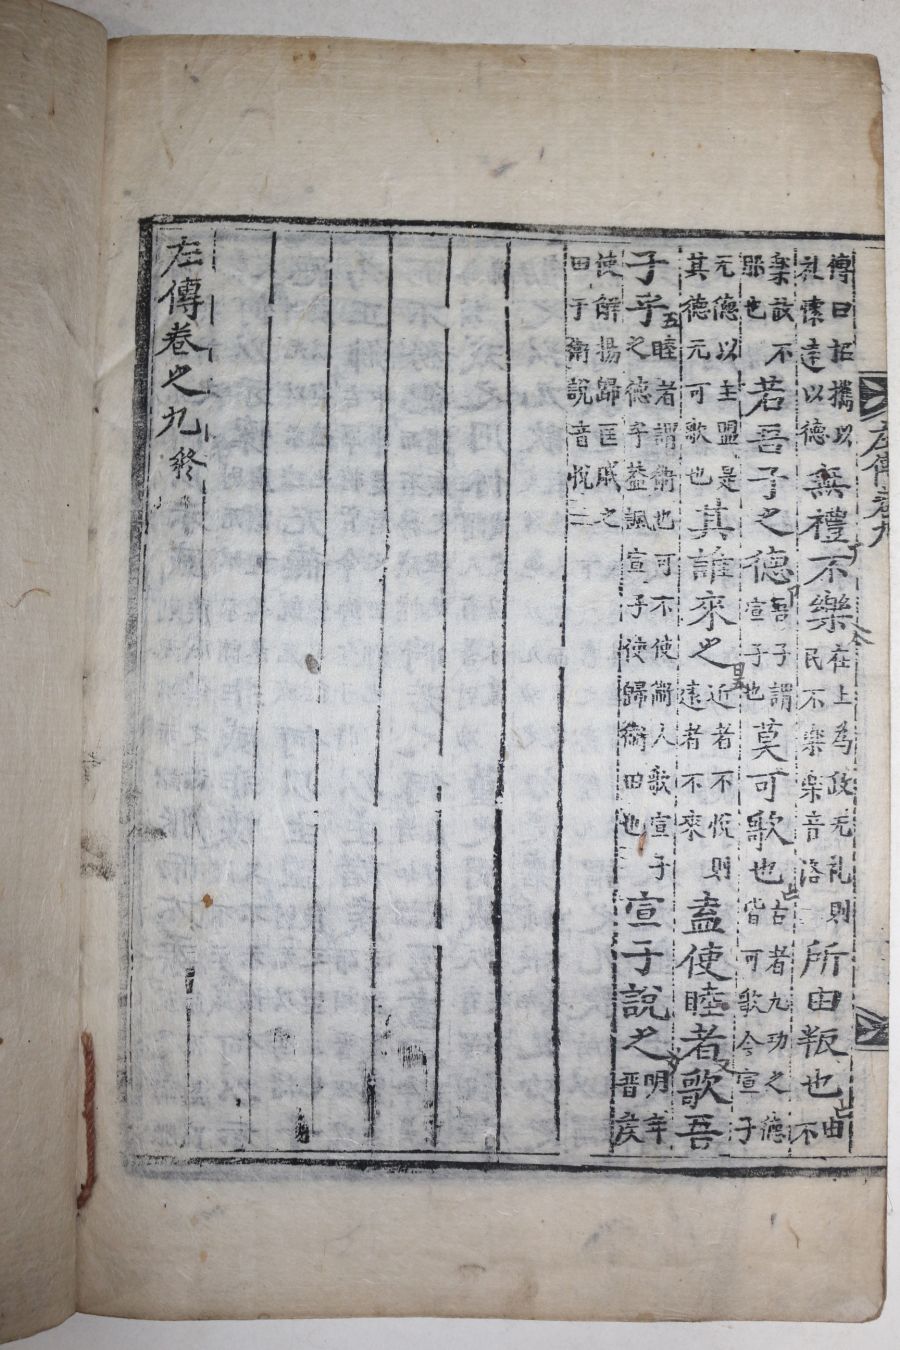 左傳卷九
傳曰招攜以礼懷遠以德無禮不樂在上爲政无礼則民不樂樂音洛所由叛也由不
樂故不耶也若吾子之德吾子謂宣子也莫可歌也古者九功之德皆可歌今宣子
无德以主盟是其德无可歌也其誰來之近者不悅則遠者不來盍使睦者歌吾
子乎睦者謂衛也可不使衛人歌宣子之德乎蓋諷宣子使歸衛田也宣子說之明年晋侯
使解揚歸匡戚之田于衛說音悅
左傳卷之九終